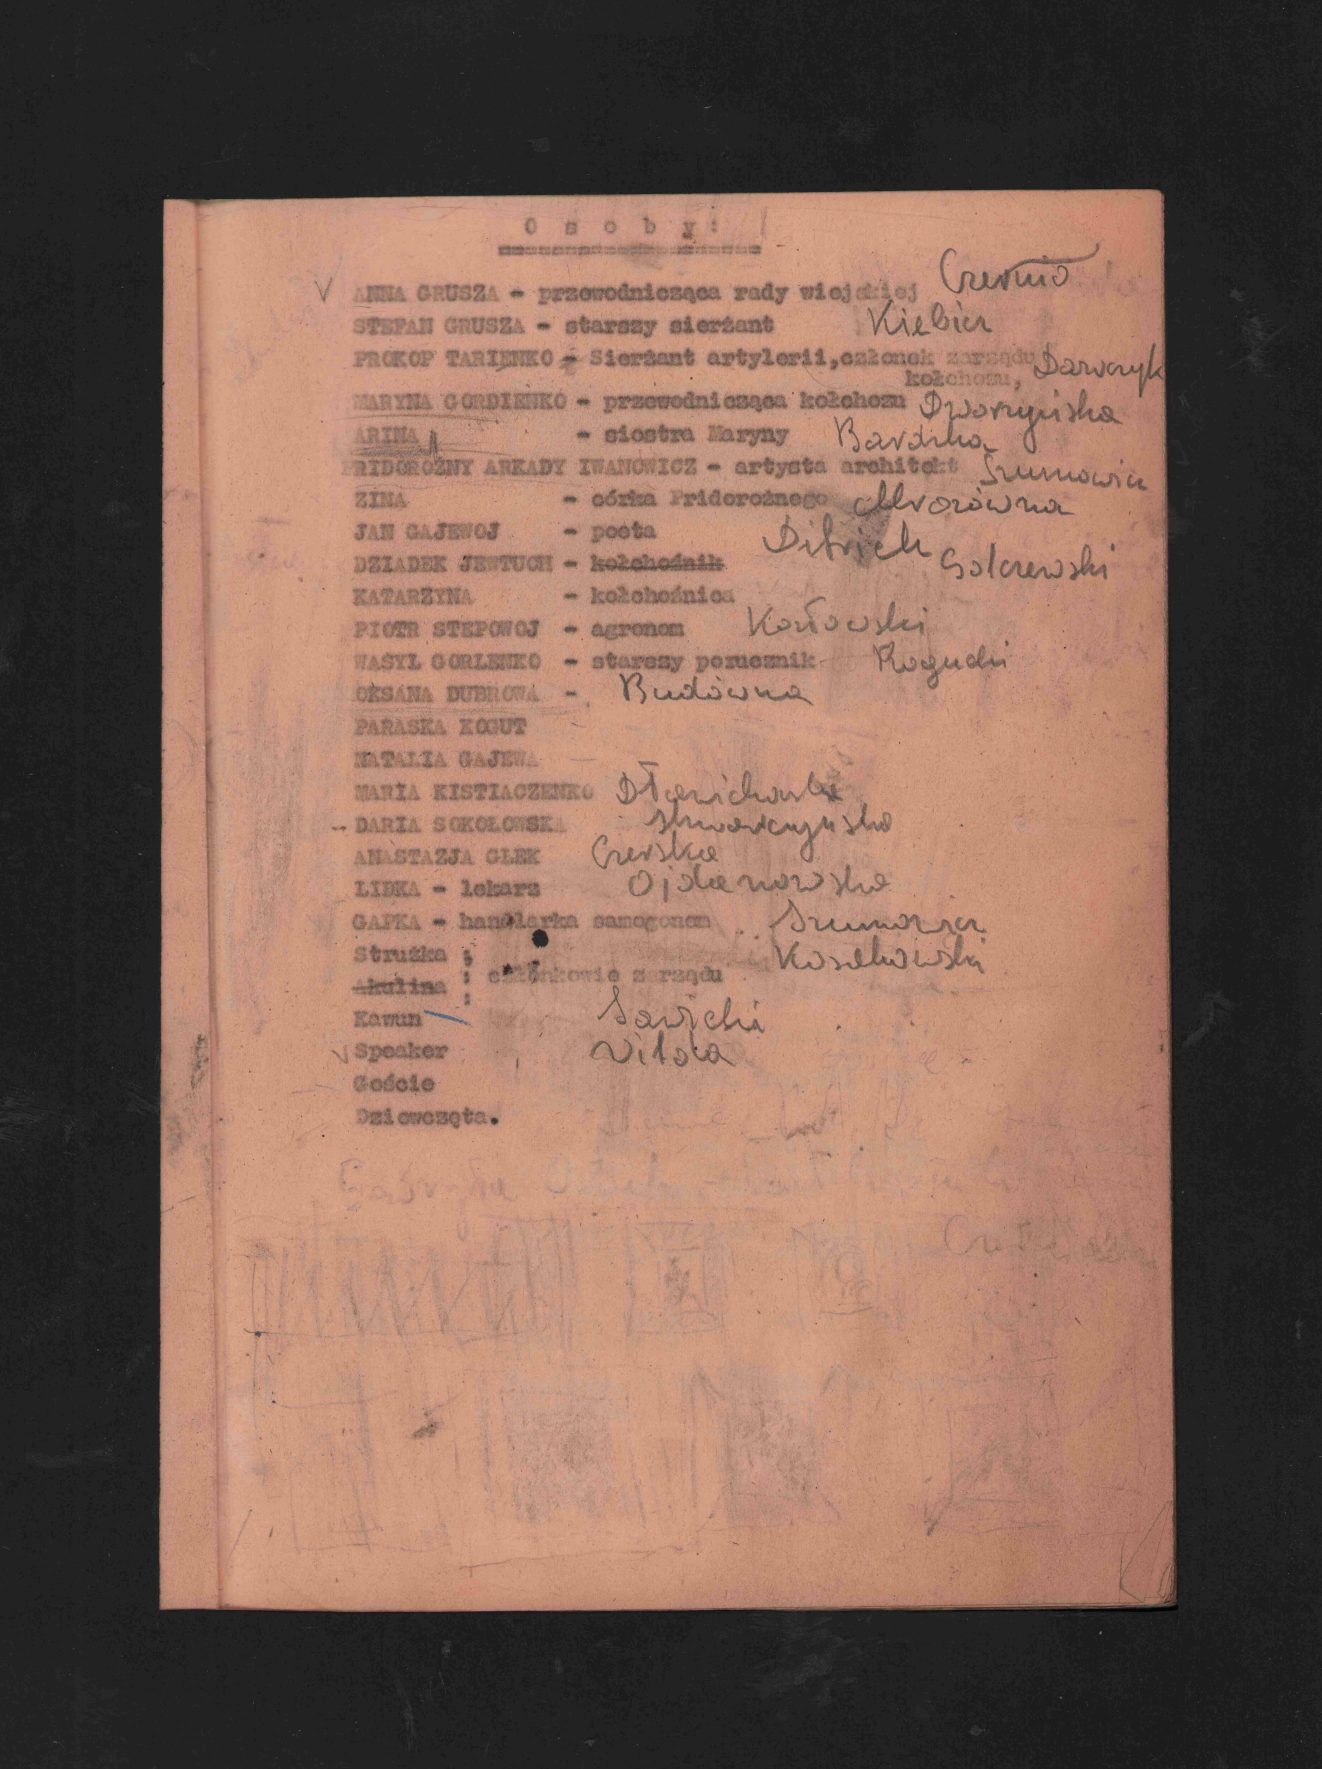 O s o b y :
ANNA GRUSZA - przewodnicząca rady wiejskiej
STEFAN GRUSZA - starszy sierżant Kiebicz
PROKOP TARIENKO - Sierżant artylerii,członek zarządu
kołchozu, Dawczyk
MARYNA GORDIENKO - przewodnicząca kołchozu Dworzyńska
ARINA - siostra Maryny Bardzka
PRIDOROŻNY ARKADY IWANOWICZ - artysta architekt Szumowicz
ZINA - córka Pridorożnego Mrozówna
JAN GAJEWOJ - poeta Ditrich
DZIADEK JEWTUCH - kołchoźnik Solczewski
KATARZYNA - kołchoźnica
PIOTR STEPOWOJ - agronom Kozłowski
WASYL GORLENKO - starszy porucznik Rogucki
OKSANA DUBROWA - Budówna
PARASKA KOGUT
NATALIA GAJEWA
MARIA KISTIACZENKO
DARIA SOKOŁOWSKA
ANASTAZJA GLEK Czerska
LIDKA - lekarz Ojdanowska
GAPKA - handlarka samogonem Szumowicz
Strużka : Kosakowski
Akulina : członkowie zarządu
:
Kawun Sawicki
Speaker Witola
Goście
Dziewczęta.